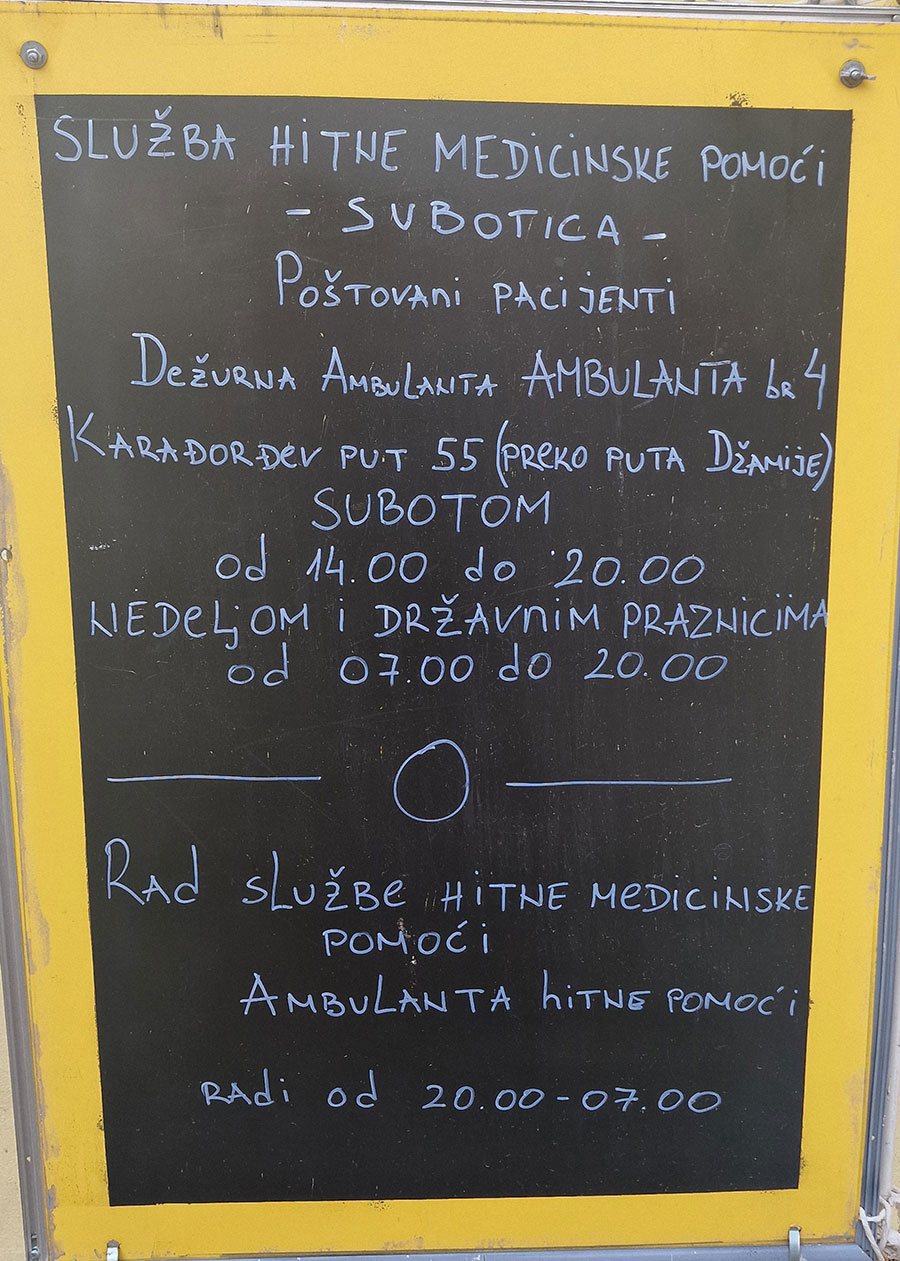 SLUŽBA HITNE MEDICINSKE POMOĆI
- SUBOTICA -
POŠTOVANI PACIJENTI
DEŽURNA AMBULANTA AMBULANTA br 4
KARAĐORĐEV PUT 55 (PREKO PUTA DŽAMIJE)
SUBOTOM
od 14.00 do 20.00
NEDELJOM i DRŽAVNIM PRAZNICIMA
od 07.00 do 20.00
RAD SLUŽBE HITNE MEDICINSKE
POMOĆI
AMBULANTA HITNE POMOĆI
RADI od 20.00-07.00